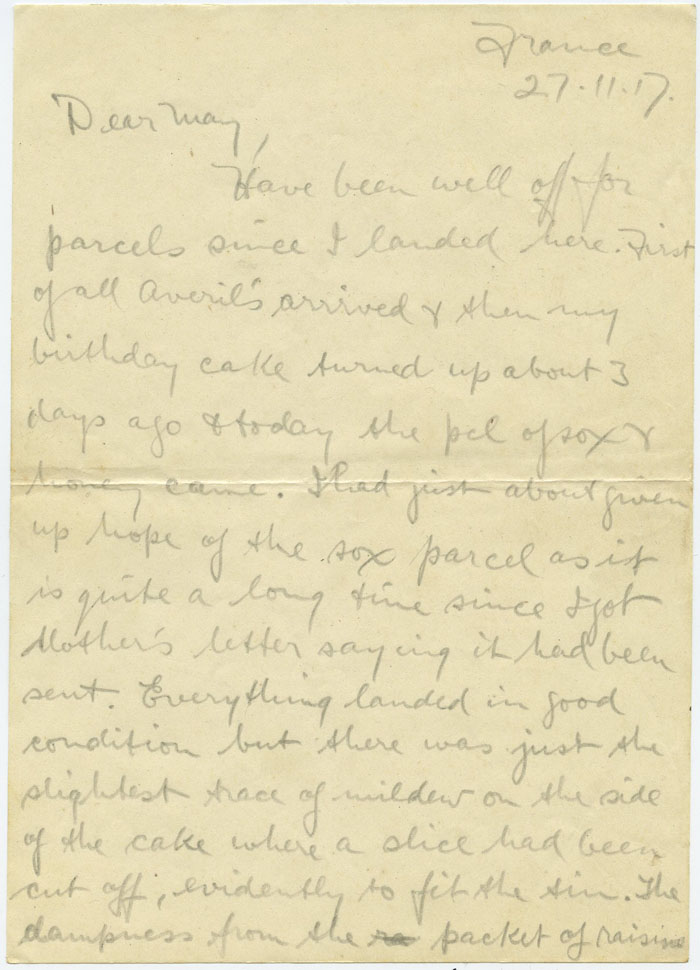 France
27.11.17.
Dear May,
Have been well off for
parcels since I landed here. First
of all Averil's arrived & then my
birthday cake turned up about 3
days ago & today the pcl of sox &
honey came. I had just about given
up hope of the sox parcel as it
is quite a long time since I got
Mother's letter saying it had been
sent. Everything landed in good
condition but there was just the
slightest trace of mildew on the side
of the cake where a slice had been
cut off, evidently to fit the tin. The
dampness from the packet of raisins